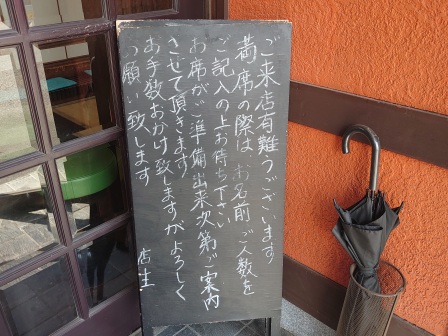 ご来店有難うございます
満席の際は お名前、ご人数を
ご記入の上お待ち下さい
お席がご準備出来次第ご案内
させて頂きます
お手数おかけ致しますがよろしく
お願い致します
店主